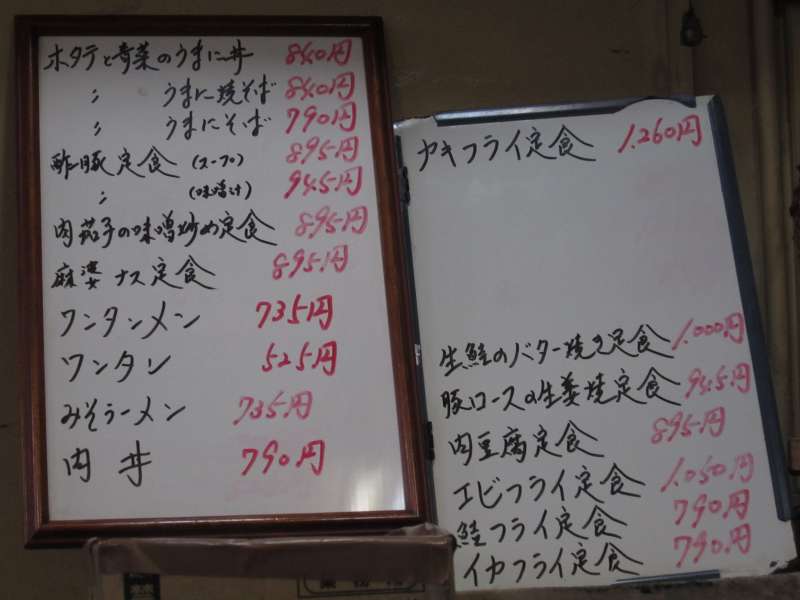 ホタテと青菜のうまに丼 840円
〃 うまに焼そば 840円
〃 うまにそば 790円
酢豚定食 (スープ) 895円
〃 (味噌汁) 945円
肉茄子の味噌炒め定食 895円
麻婆ナス定食 895円
ワンタンメン 735円
ワンタン 525円
みそラーメン 735円
肉丼 790円
カキフライ定食 1.260円
生鮭のバター焼き定食 1.000円
豚ロースの生姜焼定食 945円
肉豆腐定食 895円
エビフライ定食 1.050円
鮭フライ定食 790円
イカフライ定食 790円